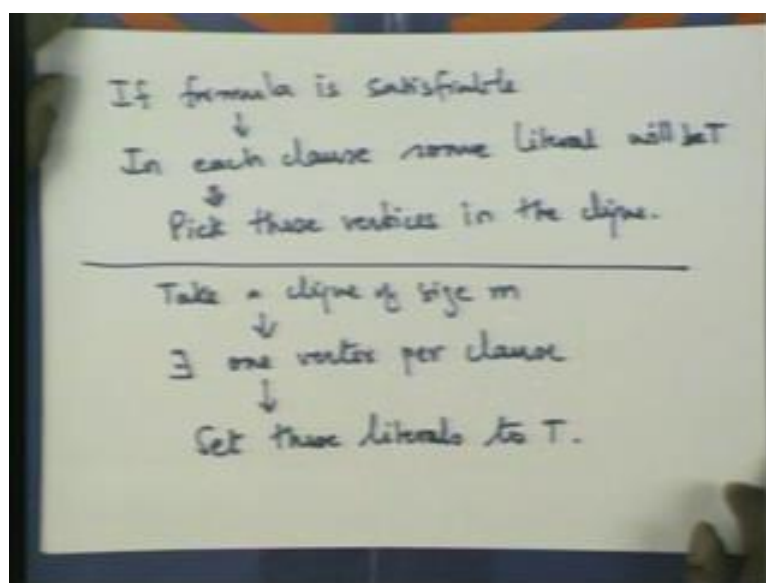 If formula is satisfiable
↓
In each clause some literal will be T
↓
Pick these vertices in the clique.
Take a clique of size m
↓
∃ one vertex per clause
↓
Set these literals to T.